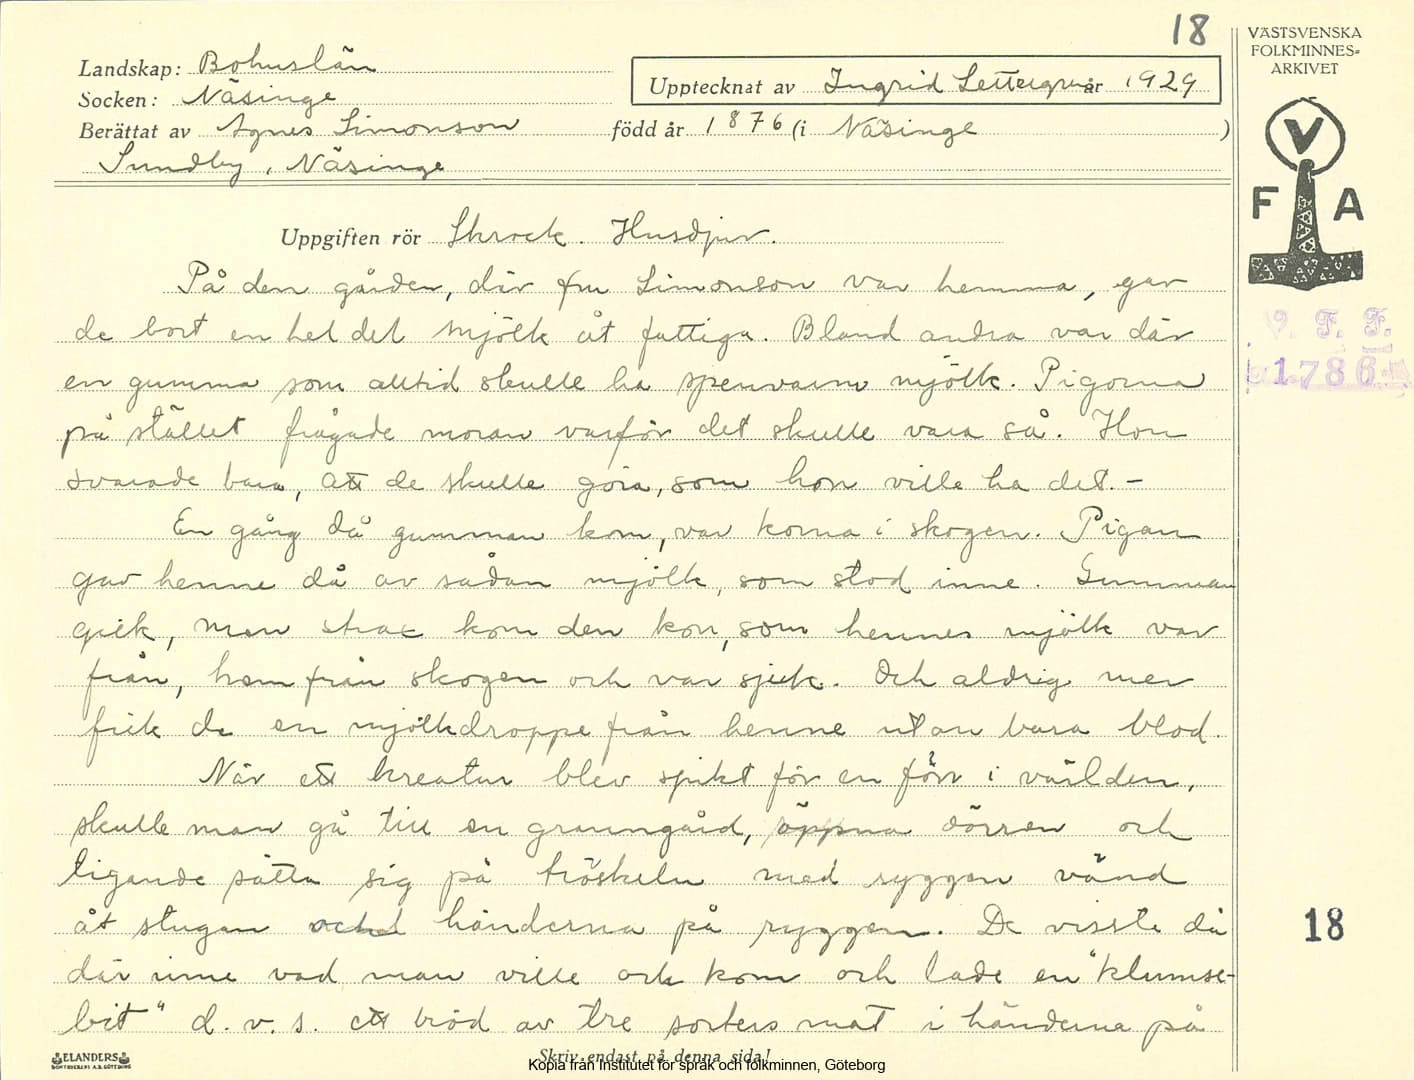 18
Landskap: Bohuslän
Socken: Näsinge
Upptecknat av Ingrid Settergren år 1929
Berättat av Agnes Simonson född år 1876 (i Näsinge )
Sundby, Näsinge
Uppgiften rör Skrock. Husdjur.
På den gården, där fru Simonson var hemma, gav
de bort en hel del mjölk åt fattiga. Bland andra var där
en gumma som alltid skulle ha spenvarm mjölk. Pigorna
på stället frågade moran varför det skulle vara så. Hon
svarade bara, att de skulle göra, som hon ville ha det. –
En gång då gumman kom, var korna i skogen. Pigan
gav henne då av sådan mjölk, som stod inne. Gumman
gick, men strax kom den kon, som hennes mjölk var
från, hem från skogen och var sjuk. Och aldrig mer
fick de en mjölkdroppe från henne utan bara blod.
När ett kreatur blev sjukt för en förr i världen,
skulle man gå till en granngård, öppna dörren och
tigande sätta sig på tröskeln med ryggen vänd
åt stugan och händerna på ryggen. De visste då
där inne vad man ville och kom och lade en "klumse-
bit" d. v. s. ett bröd av tre sorters mat i händerna på
Skriv endast på denna sida!
ELANDERS
BOKTRYCKERI A.B. GÖTEBORG
Kopia från Institutet för språk och folkminnen, Göteborg
VÄSTSVENSKA
FOLKMINNES-
ARKIVET
V
F A
V. F. F.
1786
18